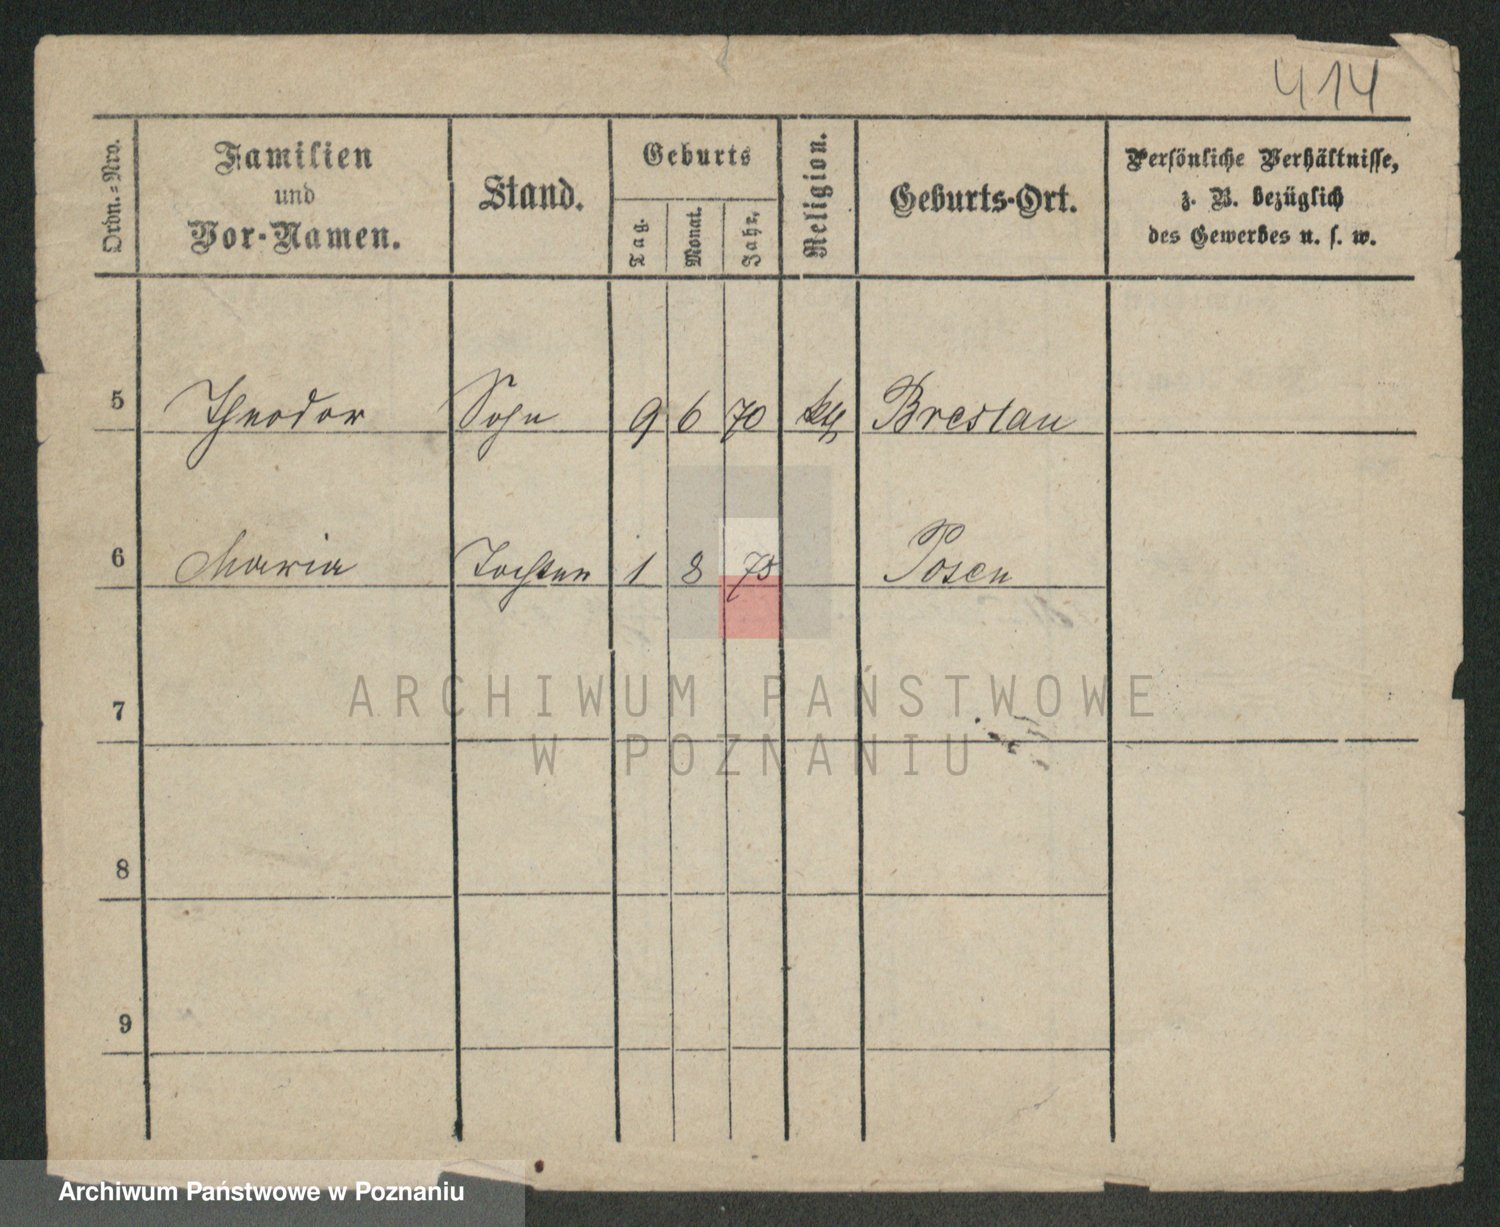 414
Ordn.=Nro.
Familien
und
Vor-Namen.
Stand.
Geburts
Tag.
Monat.
Jahr.
Religion.
Geburts-Ort.
Persönliche Verhältnisse,
z. B. bezüglich
des Gewerbes u. s. w.
5 Theodor Sohn 9 6 70 kth Breslau
6 Maria Tochter 1 8 75 Posen
ARCHIWUM PAŃSTWOWE
W POZNANIU
7
8
9
Archiwum Państwowe w Poznaniu